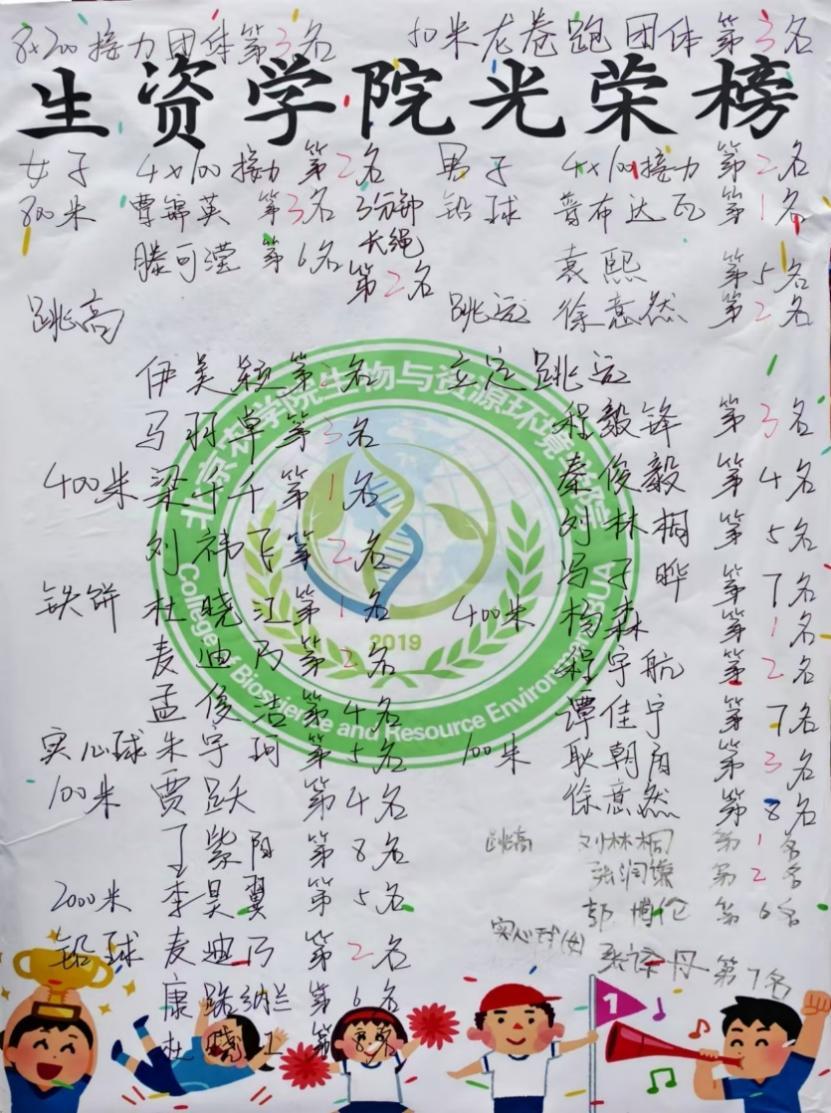 8×200接力团体第3名
50米龙卷跑团体第3名
生资学院光荣榜
女子 4×100接力 第2名
800米 曹锦英 第3名
滕可滢 第6名
3分钟
长绳
第2名
跳高
伊美颖第2名
马羽卓第3名
400米 梁千千第1名
刘祎飞第2名
铁饼 杜晓江第1名
麦迪乃第2名
孟俊洁第4名
实心球 朱宇珂第5名
100米 贾跃 第4名
丁紫阳 第8名
2000米 李昊翼 第5名
铅球 麦迪乃 第2名
康 纳兰 第6名
杜晓江 第8名
男子 4×100接力 第2名
铅球 普布达瓦 第1名
袁熙 第5名
跳远 徐意然 第2名
立定跳远
程毅锋 第3名
秦俊毅 第4名
刘林桐 第5名
冯子晔 第7名
400米 杨森 第1名
程宇航 第2名
谭佳宁 第7名
100米 耿朝阳 第3名
徐意然 第8名
跳高 刘林桐 第1名
张润 第2名
郭博伦 第6名
实心球(女) 张 丹 第7名
北京农学院生物与资源环境学院
2019
College of Bioscience and Resource Environment BUA
1